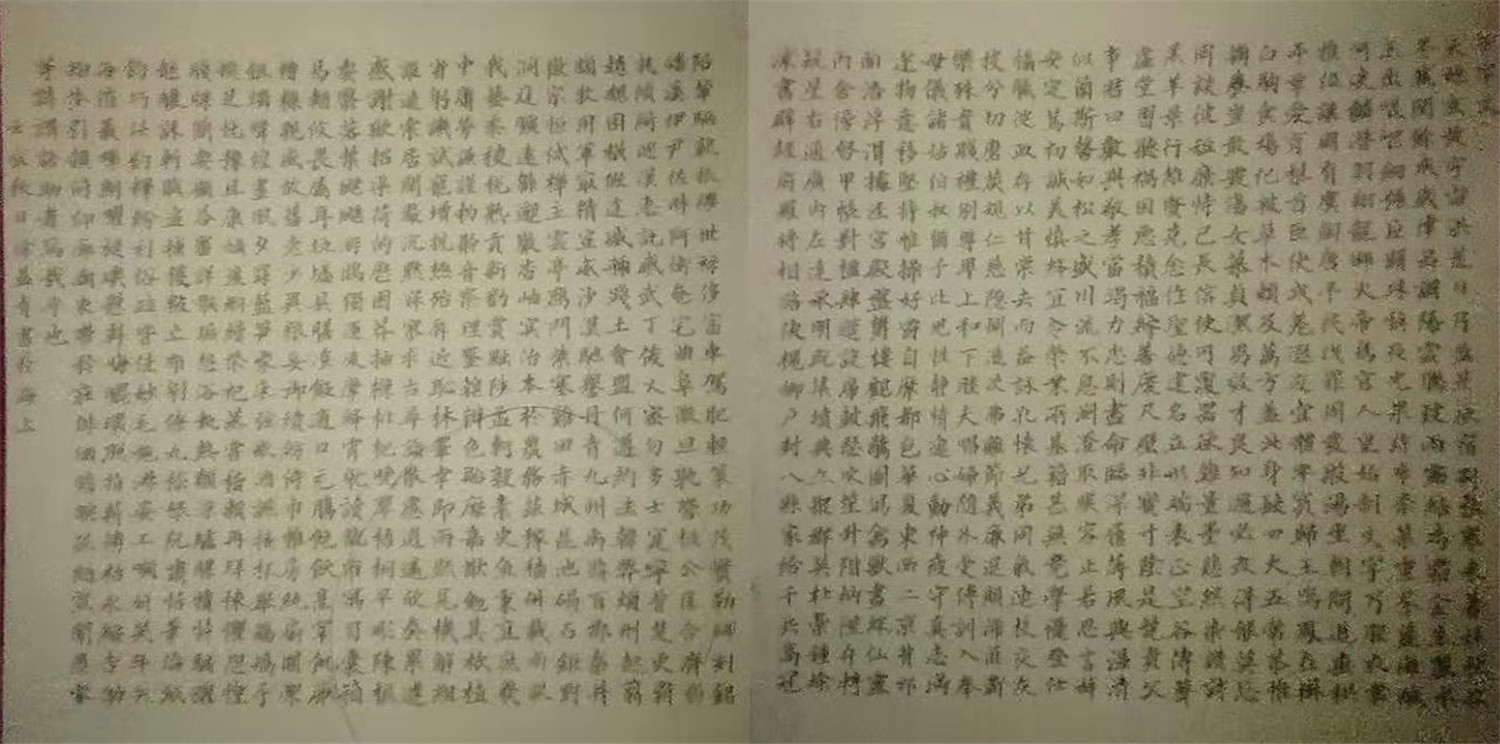 千字文
天地玄黃宇宙洪荒日月盈昃辰宿列張寒來暑往秋收
冬藏閏餘成歲律呂調陽雲騰致雨露結為霜金生麗水
玉出崑岡劍號巨闕珠稱夜光果珍李柰菜重芥薑海鹹
河淡鱗潛羽翔龍師火帝鳥官人皇始制文字乃服衣裳
推位讓國有虞陶唐弔民伐罪周發殷湯坐朝問道垂拱
平章愛育黎首臣伏戎羌遐邇壹體率賓歸王鳴鳳在樹
白駒食場化被草木賴及萬方蓋此身髮四大五常恭惟
鞠養豈敢毀傷女慕貞潔男效才良知過必改得能莫忘
罔談彼短靡恃己長信使可覆器欲難量墨悲絲染詩讚
羔羊景行維賢克念作聖德建名立形端表正空谷傳聲
虛堂習聽禍因惡積福緣善慶尺璧非寶寸陰是競資父
事君曰嚴與敬孝當竭力忠則盡命臨深履薄夙興溫清
似蘭斯馨如松之盛川流不息淵澄取映容止若思言辭
安定篤初誠美慎終宜令榮業所基籍甚無竟學優登仕
攝職從政存以甘棠去而益詠孔懷兄弟同氣連枝交友
投分切磨箴規仁慈隱惻造次弗離節義廉退顛沛匪虧
樂殊貴賤禮別尊卑上和下睦夫唱婦隨外受傅訓入奉
母儀諸姑伯叔猶子比兒性靜情逸心動神疲守真志滿
逐物意移堅持雅操好爵自縻都邑華夏東西二京背邙
面洛浮渭據涇宮殿盤鬱樓觀飛驚圖寫禽獸畫綵仙靈
丙舍傍啟甲帳對楹肆筵設席鼓瑟吹笙陞階納陛弁轉
疑星右通廣內左達承明既集墳典亦聚群英杜稾鍾隸
漆書壁經府羅將相路俠槐卿戶封八縣家給千兵高冠
陪輦驅轂振纓世祿侈富車駕肥輕策功茂實勒碑刻銘
磻溪伊尹佐時阿衡奄宅曲阜微旦孰營桓公匡合濟弱
扶傾綺迴漢惠說感武丁俊乂密勿多士寔寧晉楚更霸
趙魏困橫假途滅虢踐土會盟何遵約法韓弊煩刑起翦
頗牧用軍最精宣威沙漠馳譽丹青九州禹跡百郡秦并
嶽宗恒岱禪主云亭雁門紫塞雞田赤城昆池碣石鉅野
洞庭曠遠綿邈巖岫杳冥治本於農務茲稼穡俶載南畝
我藝黍稷稅熟貢新勸賞黜陟孟軻敦素史魚秉直庶幾
中庸勞謙謹敕聆音察理鑒貌辨色貽厥嘉猷勉其祗植
省躬譏誡寵增抗極殆辱近恥林皋幸即兩疏見機解組
誰逼索居閒處沉默寂寥求古尋論散慮逍遙欣奏累遣
慼謝歡招渠荷的歷園莽抽條枇杷晚翠梧桐早彫陳根
委翳落葉飄颻游鵾獨運凌摩絳霄耽讀翫市寓目囊箱
易輶攸畏屬耳垣牆具膳飡飯適口充腸飽飫烹宰飢厭
糟糠親戚故舊老少異糧妾御績紡侍巾帷房紈扇圓潔
銀燭煒煌晝眠夕寐藍筍象床弦歌酒讌接杯舉觴矯手
頓足悅豫且康嫡後嗣續祭祀蒸嘗稽顙再拜悚懼恐惶
牋牒簡要顧答審詳骸垢想浴執熱願涼驢騾犢特駭躍
超驤誅斬賊盜捕獲叛亡布射僚丸嵇琴阮嘯恬筆倫紙
鈞巧任釣釋紛利俗並皆佳妙毛施淑姿工顰妍笑年矢
每催羲暉朗曜璇璣懸斡晦魄環照指薪修祜永綏吉劭
矩步引領俯仰廊廟束帶矜莊徘徊瞻眺孤陋寡聞愚蒙
等誚謂語助者焉哉乎也
秋日益青書於海上